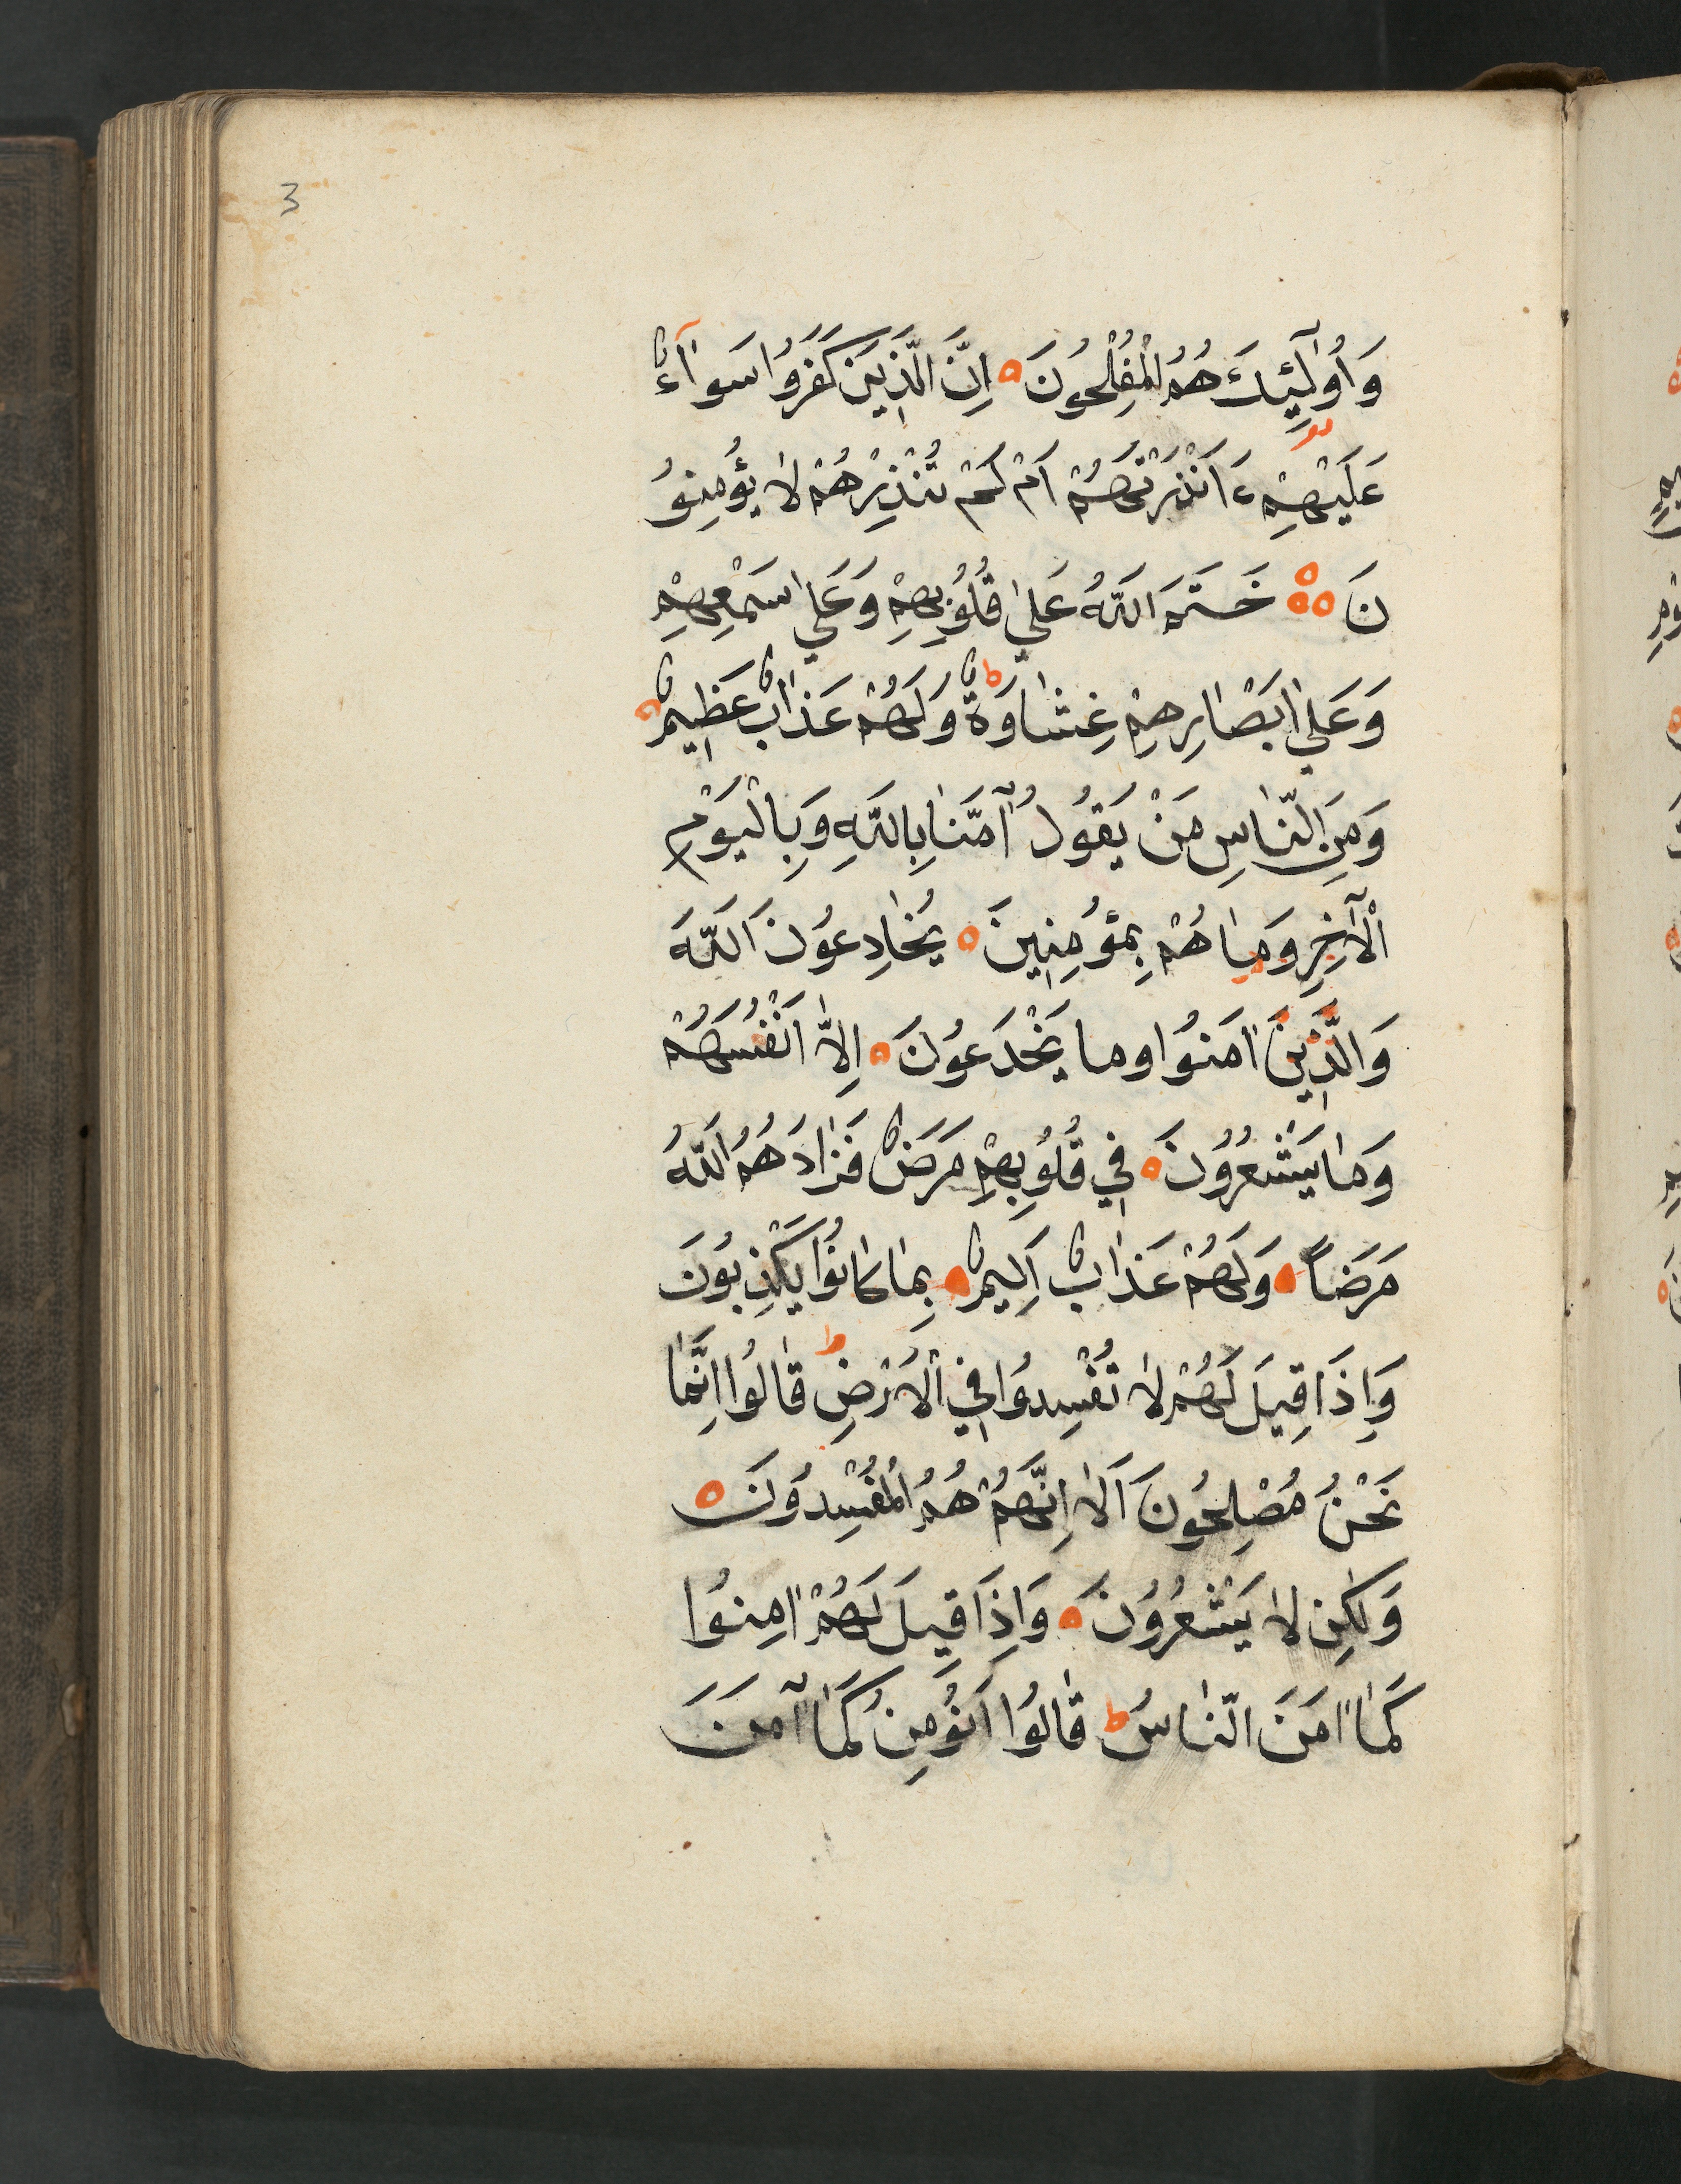 3
وَاُولٰٓئِكَ هُمُ الْمُفْلِحُونَ ۝ اِنَّ الَّذِينَ كَفَرُوا سَوَآءٌ
عَلَيْهِمْ ءَاَنْذَرْتَهُمْ اَمْ لَمْ تُنْذِرْهُمْ لَا يُؤْمِنُو
نَ ۝ خَتَمَ اللَّهُ عَلٰي قُلُوبِهِمْ وَعَلٰي سَمْعِهِمْ
وَعَلٰي اَبْصَارِهِمْ غِشَاوَةٌ ط وَلَهُمْ عَذَابٌ عَظِيمٌ ۝
وَمِنَ النَّاسِ مَنْ يَقُولُ آمَنَّا بِاللَّهِ وَبِالْيَوْمِ
الْآخِرِ وَمَا هُمْ بِمُؤْمِنِينَ ۝ يُخَادِعُونَ اللَّهَ
وَالَّذِينَ اٰمَنُوا وما يَخْدَعُونَ ۝ اِلَّا اَنْفُسَهُمْ
وَمَا يَشْعُرُونَ ۝ فِي قُلُوبِهِمْ مَرَضٌ فَزَادَهُمُ اللَّهُ
مَرَضاً ۝ وَلَهُمْ عَذَابٌ اَلِيمٌ ۝ بِمَا كَانُوا يَكْذِبُونَ
وَاِذَا قِيلَ لَهُمْ لَا تُفْسِدُوا فِي الْاَرْضِ ط قَالُوا اِنَّمَا
نَحْنُ مُصْلِحُونَ اَلَا اِنَّهُمْ هُمُ الْمُفْسِدُونَ ۝
وَلٰكِن لَا يَشْعُرُونَ ۝ وَاِذَا قِيلَ لَهُمْ اٰمِنُوا
كَمَا اٰمَنَ النَّاسُ ط قَالُوا اَنُؤْمِنُ كَمَا آمَنَ